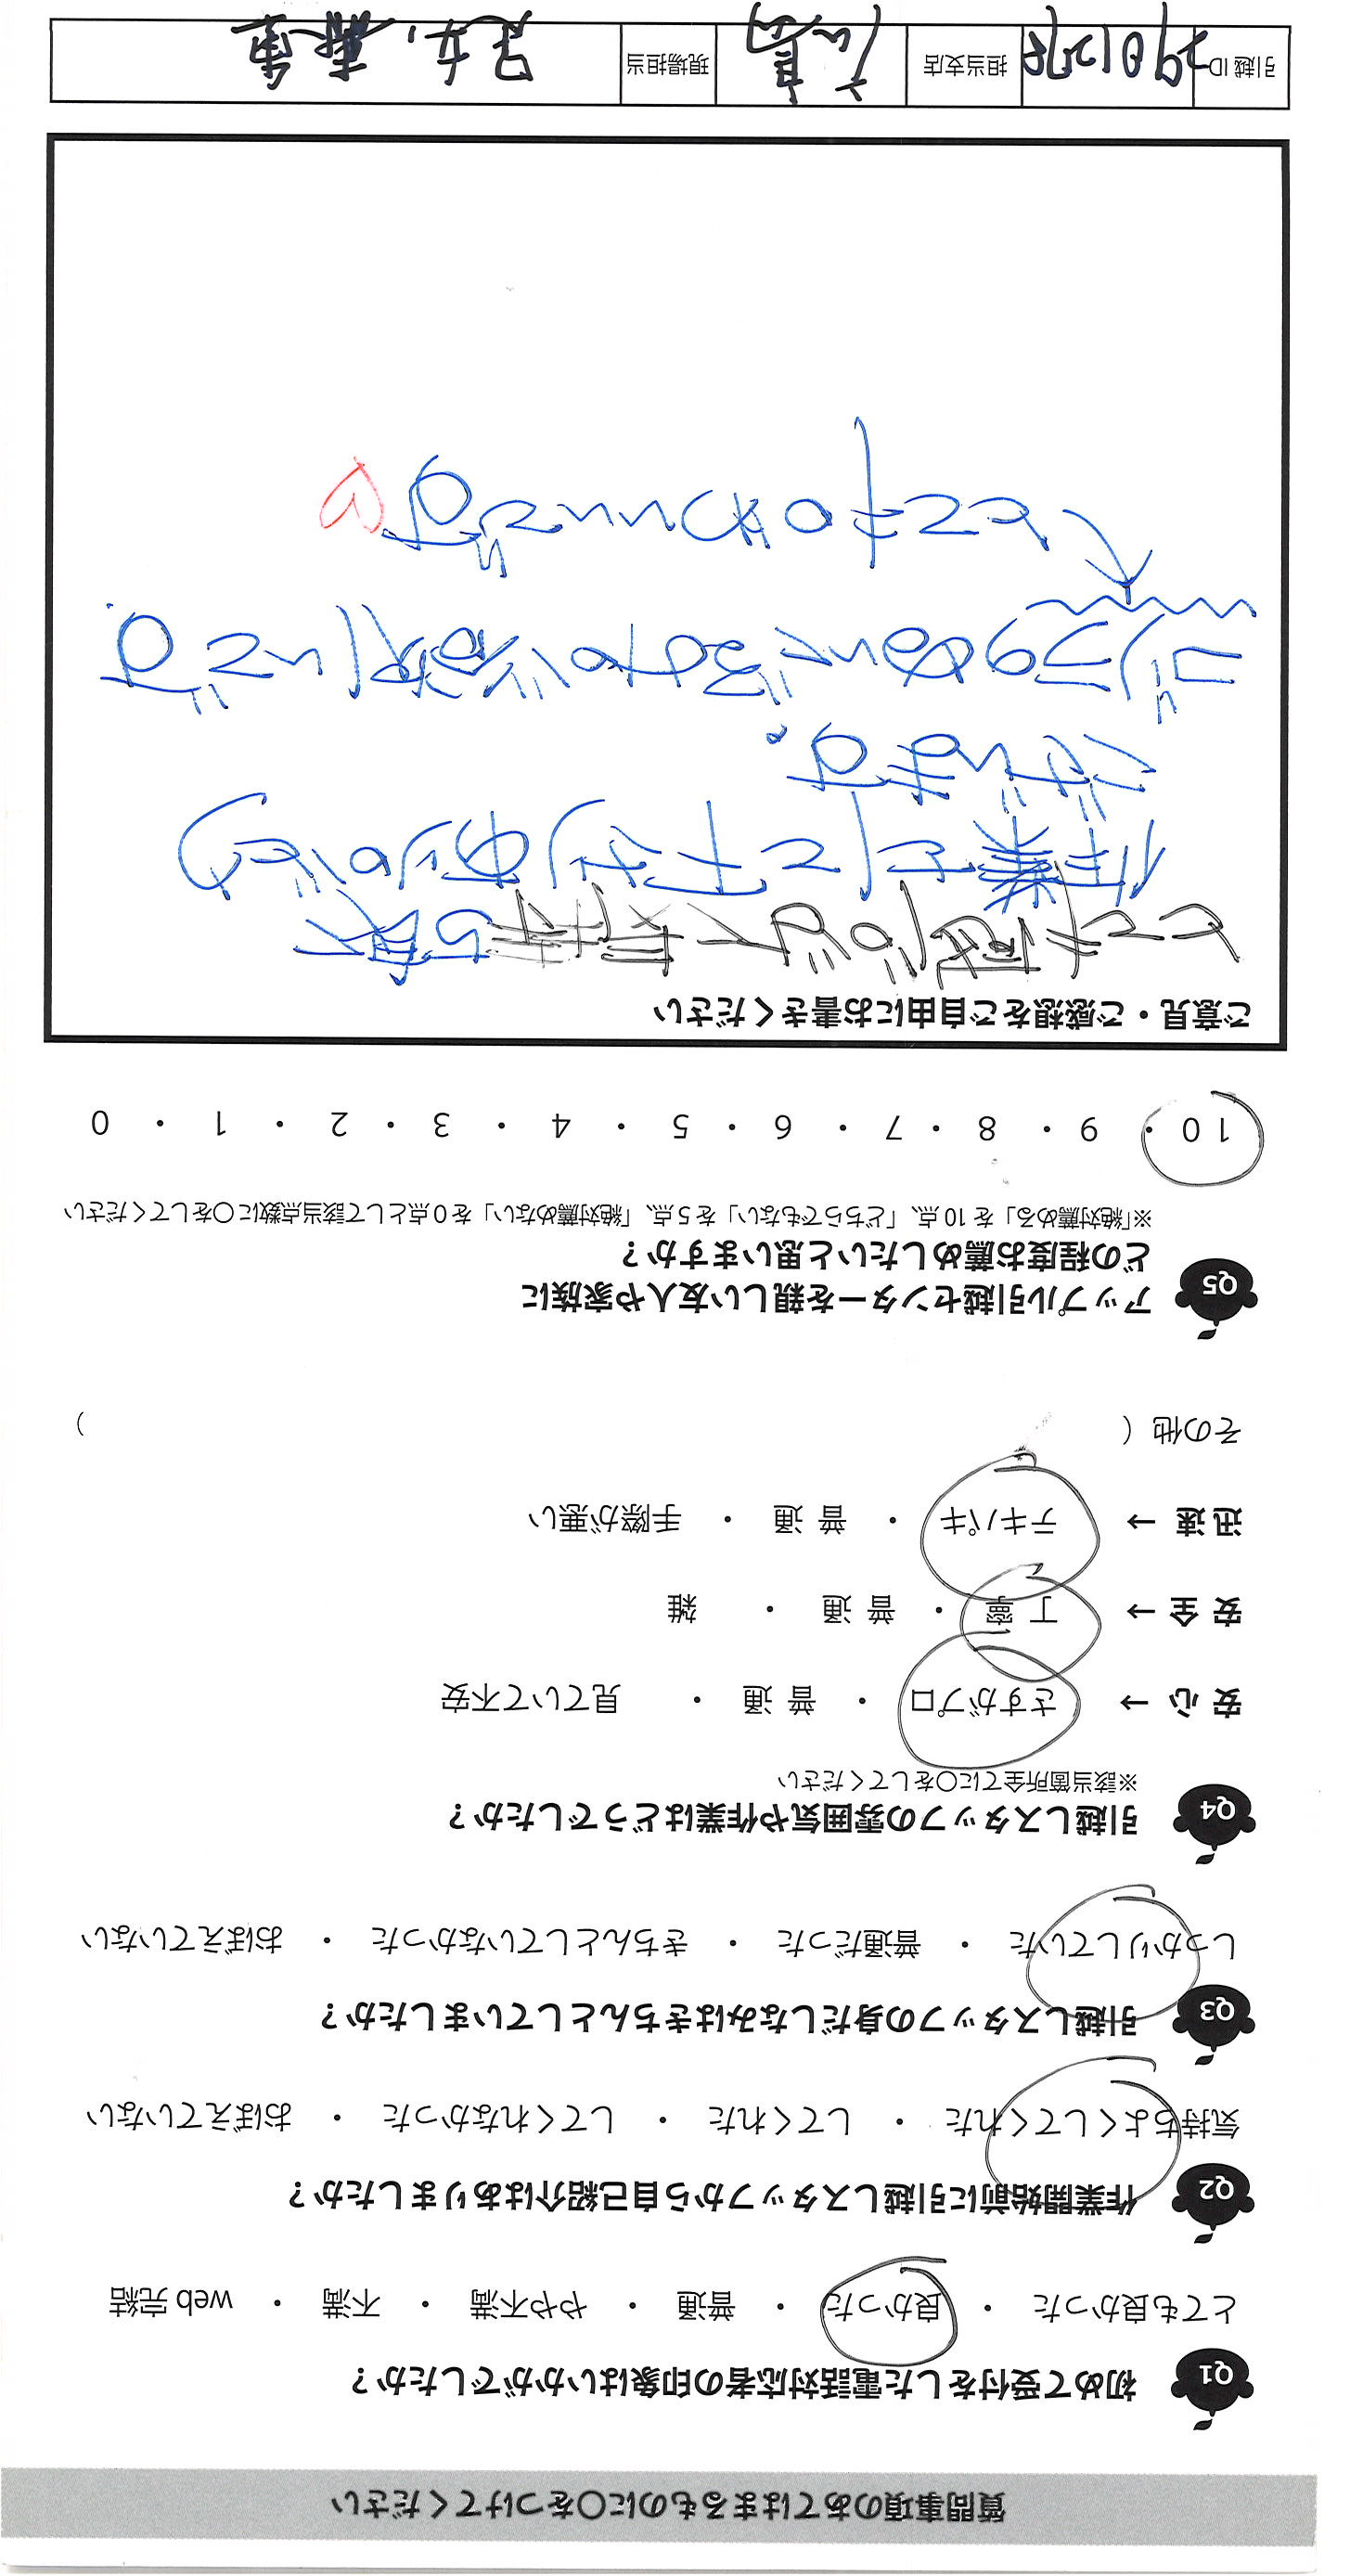 質問事項のあてはまるものに〇をつけてください
Q1 初めて受付をした電話対応者の印象はいかがでしたか？
とても良かった ・ 良かった ・ 普通 ・ やや不満 ・ 不満 ・ web 完結
Q2 作業開始前に引越しスタッフから自己紹介はありましたか？
気持ちよくしてくれた ・ してくれた ・ してくれなかった ・ おぼえていない
Q3 引越しスタッフの身だしなみはきちんとしていましたか？
しっかりしていた ・ 普通だった ・ きちんとしていなかった ・ おぼえていない
Q4 引越しスタッフの雰囲気や作業はどうでしたか？
※該当箇所全てに〇をしてください
安心 → さすがプロ ・ 普通 ・ 見ていて不安
安全 → 丁寧 ・ 普通 ・ 雑
迅速 → テキパキ ・ 普通 ・ 手際が悪い
その他（ ）
Q5 アップル引越センターを親しい友人や家族に
どの程度お薦めしたいと思いますか？
※「絶対薦める」を 10 点、「どちらでもない」を 5 点、「絶対薦めない」を 0 点として該当点数に〇をしてください
10 ・ 9 ・ 8 ・ 7 ・ 6 ・ 5 ・ 4 ・ 3 ・ 2 ・ 1 ・ 0
ご意見・ご感想をご自由にお書きください
とても感じがよく気持ち良く
作業をして下さり ありがとう
ございます。
です。
とてもかわいいです♡
引越 ID 担当支店 現場担当